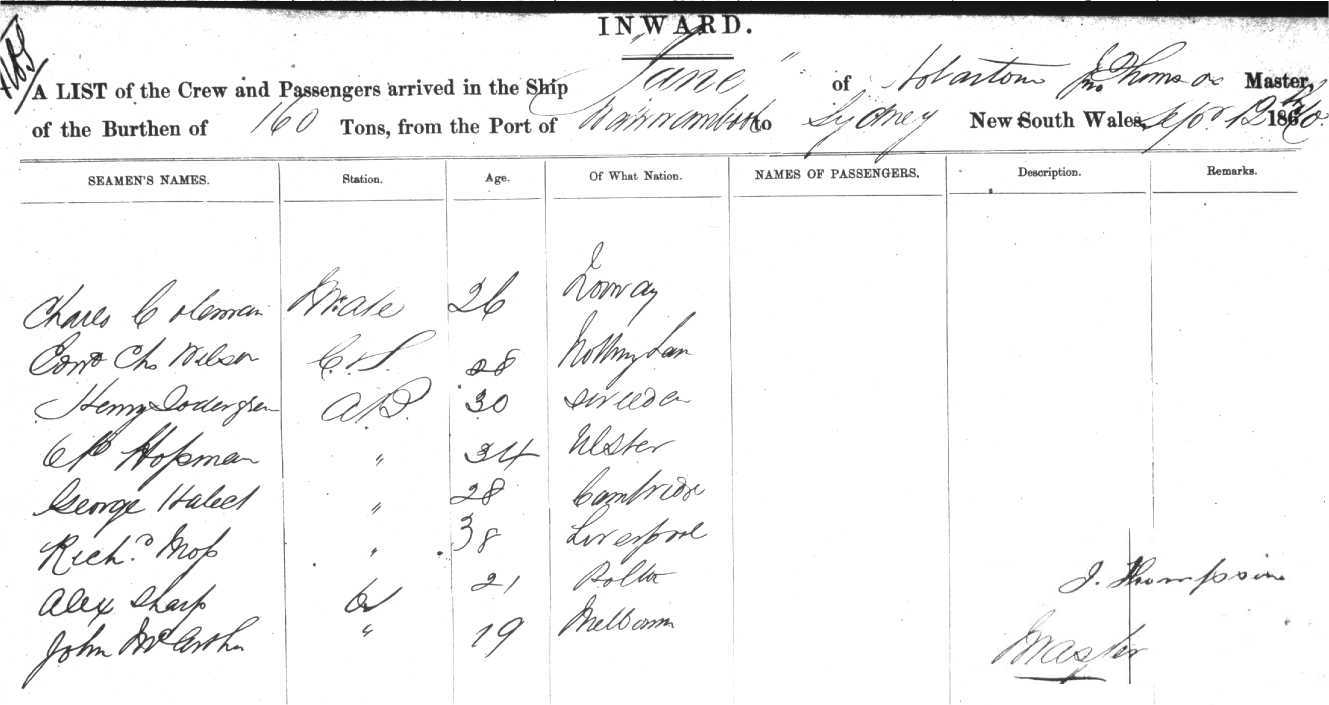 INWARD.
A LIST of the Crew and Passengers arrived in the Ship "Jane" of Hobartown Jno Thomson Master,
of the Burthen of 160 Tons, from the Port of Warrnambool to Sydney New South Wales, Sepr 12th 1860.
SEAMEN'S NAMES. Station. Age. Of What Nation. NAMES OF PASSENGERS. Description. Remarks.
Charles Coleman Mate 26 Norway
Edwd Chs Wilson C & S. 28
Henry Sodergren AB 30 Sweden
Hopman " 34 Ulster
George " 28 Cambridge
Richd Moss " 38 Liverpool
Alex Sharp 21
John McArthur " 19 Melbourn
J. Thompson
Master